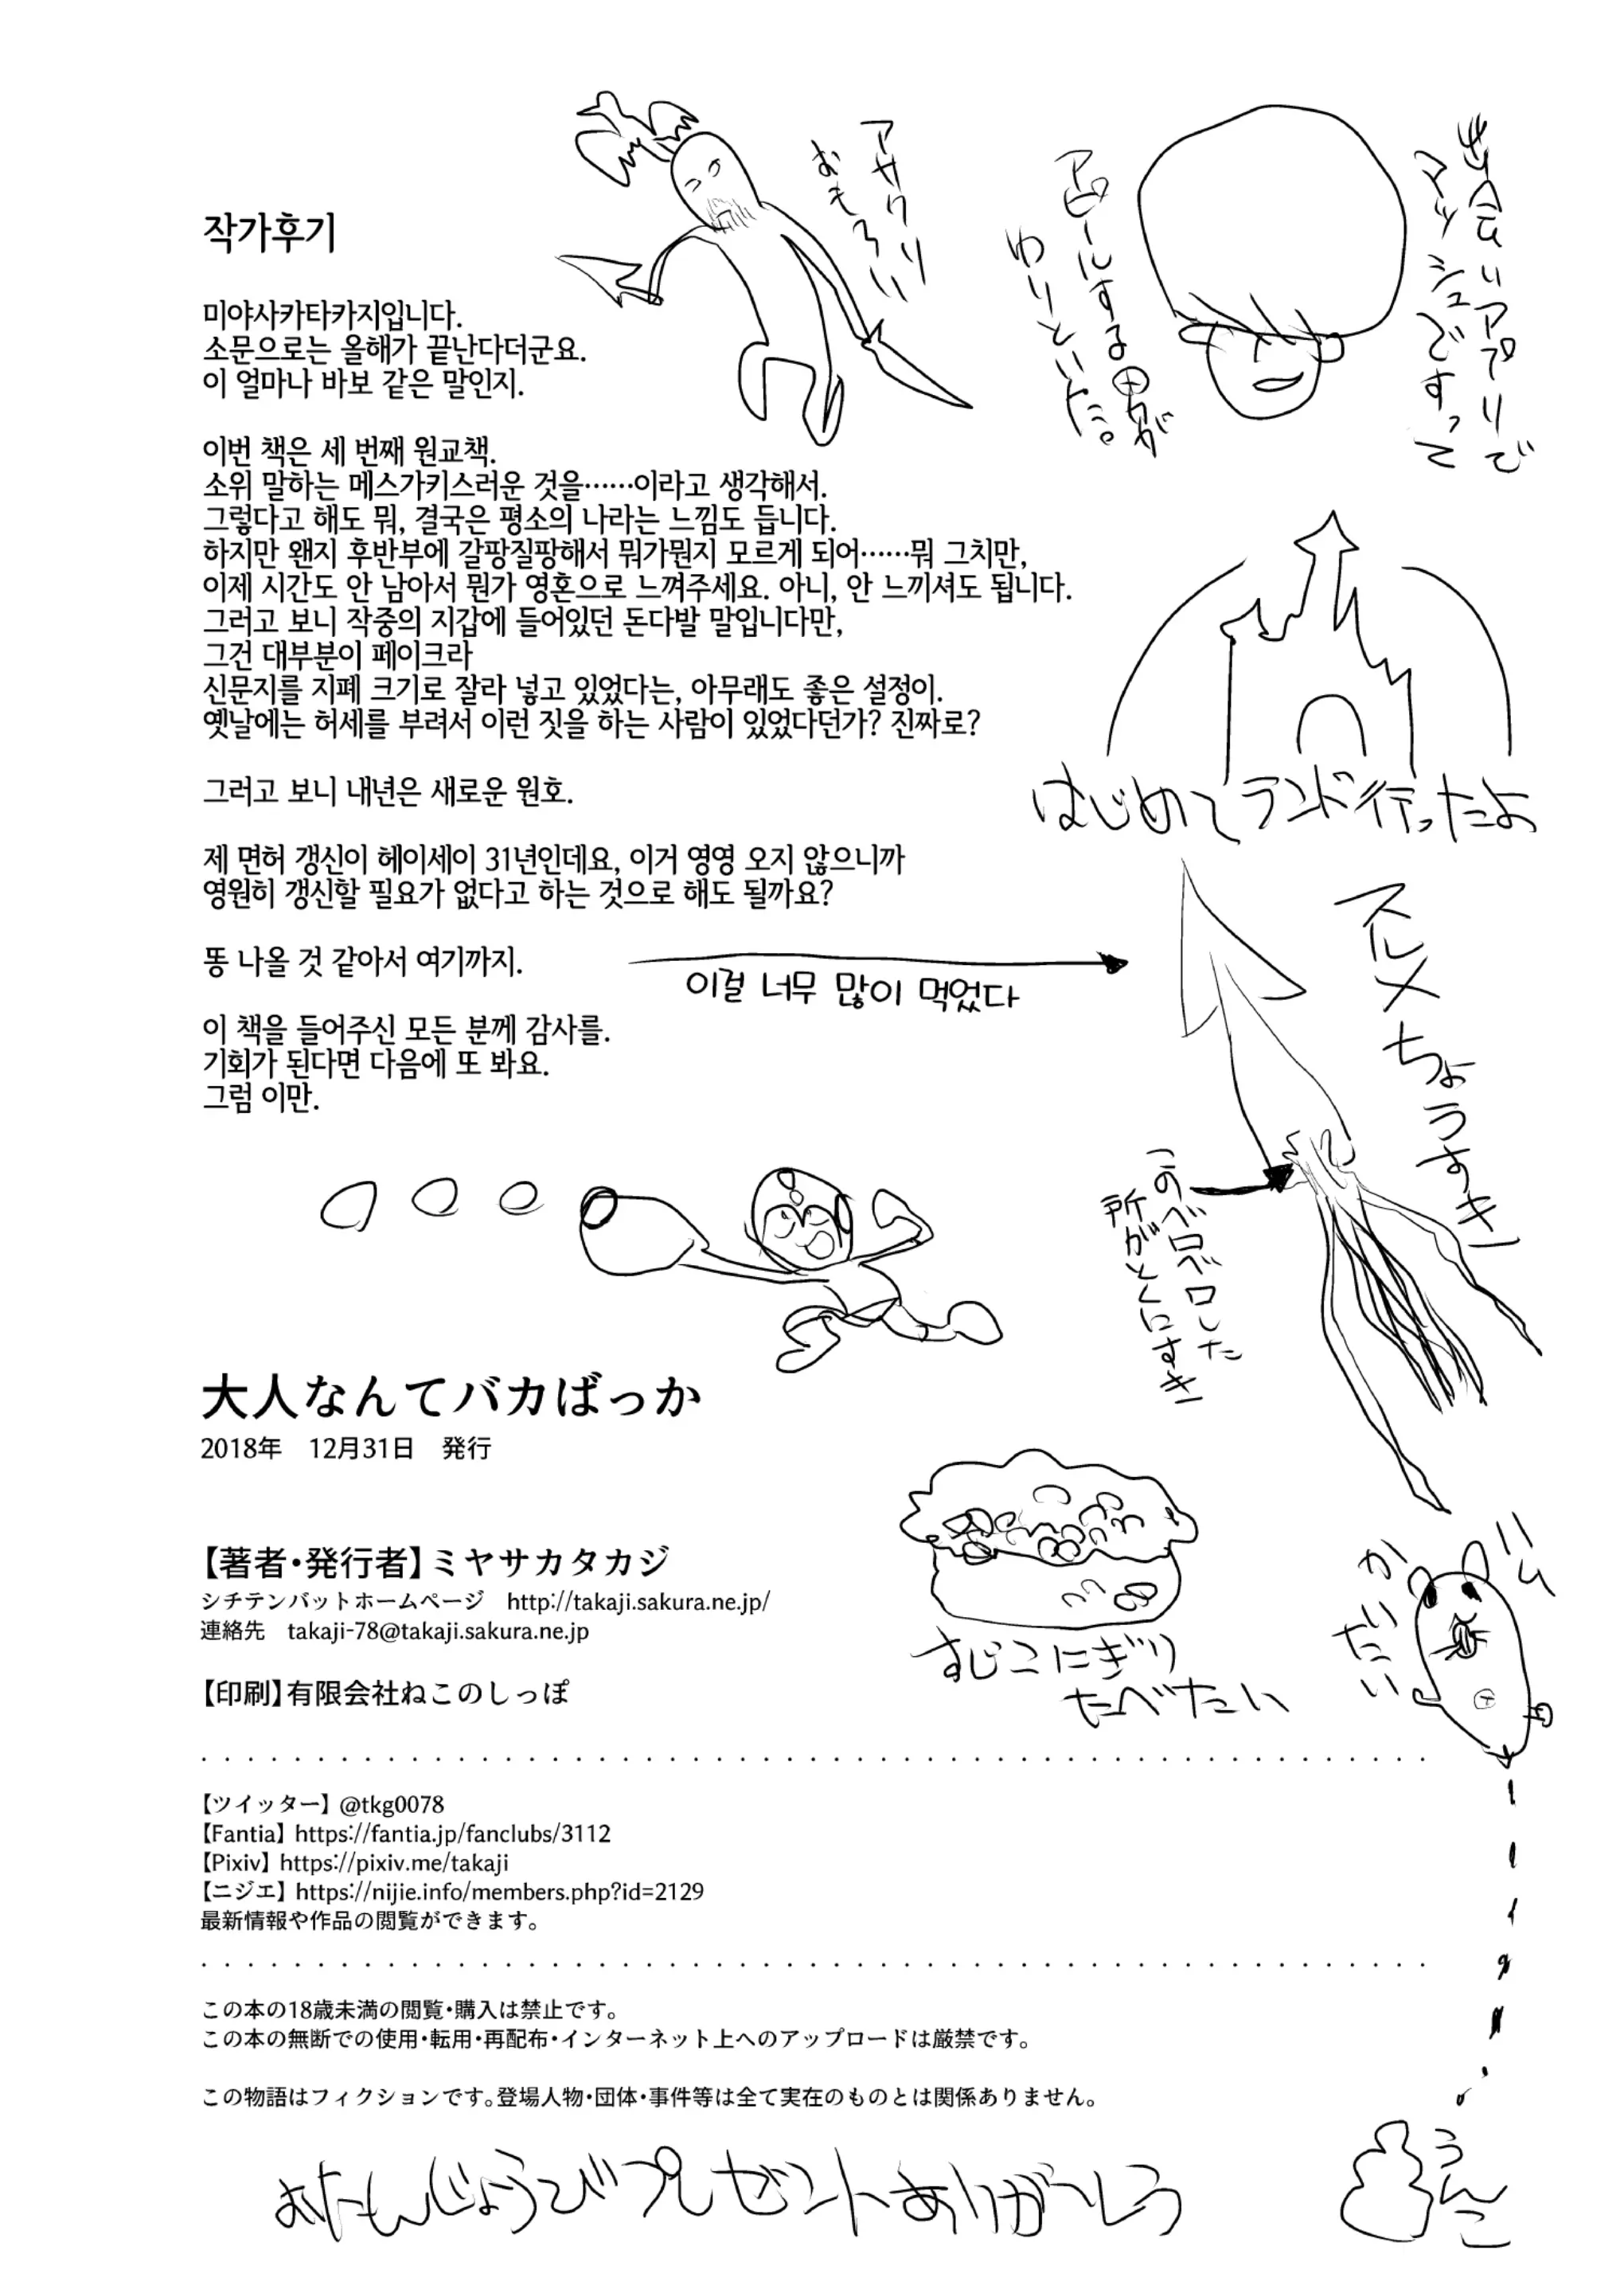 アサクリ
おもろい
出会いアプリで
マッシュですって
アピールする男が
わりといた。
작가후기
미야사카타카지입니다.
소문으로는 올해가 끝난다더군요.
이 얼마나 바보 같은 말인지.
이번 책은 세 번째 원교책.
소위 말하는 메스가키스러운 것을……이라고 생각해서.
그렇다고 해도 뭐, 결국은 평소의 나라는 느낌도 듭니다.
하지만 왠지 후반부에 갈팡질팡해서 뭐가뭔지 모르게 되어……뭐 그치만,
이제 시간도 안 남아서 뭔가 영혼으로 느껴주세요. 아니, 안 느끼셔도 됩니다.
그러고 보니 작중의 지갑에 들어있던 돈다발 말입니다만,
그건 대부분이 페이크라
신문지를 지폐 크기로 잘라 넣고 있었다는, 아무래도 좋은 설정이.
옛날에는 허세를 부려서 이런 짓을 하는 사람이 있었다던가? 진짜로?
그러고 보니 내년은 새로운 원호.
はじめてランド行ったよ
제 면허 갱신이 헤이세이 31년인데요, 이거 영영 오지 않으니까
영원히 갱신할 필요가 없다고 하는 것으로 해도 될까요?
똥 나올 것 같아서 여기까지.
이걸 너무 많이 먹었다
スルメちょうすき
이 책을 들어주신 모든 분께 감사를.
기회가 된다면 다음에 또 봐요.
그럼 이만.
このベロベロした
所がとくにすき
大人なんてバカばっか
2018年　12月31日　発行
【著者・発行者】ミヤサカタカジ
シチテンバットホームページ　http://takaji.sakura.ne.jp/
連絡先　takaji-78@takaji.sakura.ne.jp
すじこにぎり
たべたい
ハム
かいたい
【印刷】有限会社ねこのしっぽ
【ツイッター】@tkg0078
【Fantia】https://fantia.jp/fanclubs/3112
【Pixiv】https://pixiv.me/takaji
【ニジエ】https://nijie.info/members.php?id=2129
最新情報や作品の閲覧ができます。
この本の18歳未満の閲覧・購入は禁止です。
この本の無断での使用・転用・再配布・インターネット上へのアップロードは厳禁です。
この物語はフィクションです。登場人物・団体・事件等は全て実在のものとは関係ありません。
おたんじょうびプレゼントありがとう
うんこ